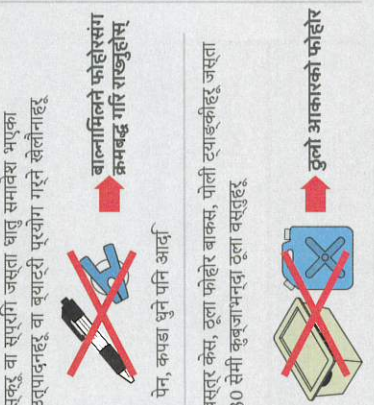 स्क्रू वा स्प्रिंग जस्ता धातु समावेश भएका
उत्पादनहरू वा ब्याट्री प्रयोग गर्ने खेलौनाहरू
बाल्नामिलने फोहोरसंग
क्रमबद्ध गरि राख्नुहोस्
पेन, कपडा धुने पनि आर्द्
वस्त्र केस, ठूला फोहोर बाकस, पोली ट्याङ्कीहरू जस्ता
सेमी कुब्जाभन्दा ठूला वस्तुहरू
ठूलो आकारको फोहोर